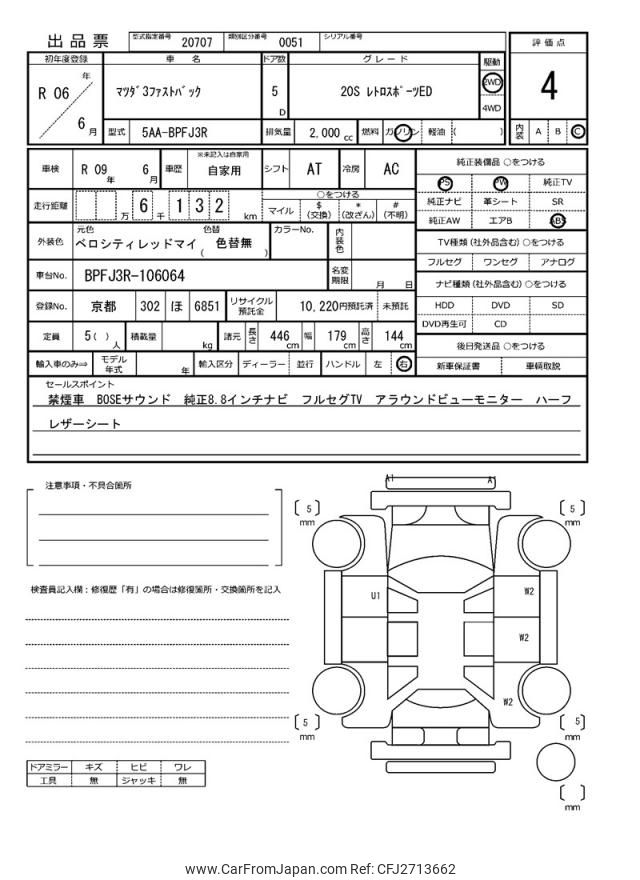 出品票 型式指定番号 20707 類別区分番号 0051 シリアル番号
初年度登録 車名 ドア数 グレード 駆動 評価点
R 06 年 6 月 ﾏﾂﾀﾞ3ﾌｧｽﾄﾊﾞｯｸ 5 D 20S ﾚﾄﾛｽﾎﾟｰﾂED 2WD 4WD 4
型式 5AA-BPFJ3R 排気量 2,000 cc 燃料 ガソリン 軽油 ( ) 内装 A B C
車検 R 09 年 6 月 車歴 ※未記入は自家用 自家用 シフト AT 冷房 AC
純正装備品 ○をつける
PS PW 純正TV
走行距離 万 6 千 1 3 2 km ○をつける
マイル $ (交換) * (改ざん) # (不明)
純正ナビ 革シート SR
純正AW エアB ABS
外装色 元色 ベロシティレッドマイ 色替 ( 色替無 ) カラーNo. 内装色
TV種類 (社外品含む) ○をつける
フルセグ ワンセグ アナログ
車台No. BPFJ3R-106064 名変期限 月 日
ナビ種類 (社外品含む) ○をつける
登録No. 京都 302 ほ 6851 リサイクル預託金 10,220円預託済 未預託
HDD DVD SD
DVD再生可 CD
定員 5 ( ) 人 積載量 kg 諸元 長さ 446 cm 幅 179 cm 高さ 144 cm
後日発送品 ○をつける
輸入車のみ⇒ モデル年式 年 輸入区分 ディーラー 並行 ハンドル 左 右
新車保証書 車輌取説
セールスポイント
禁煙車 BOSEサウンド 純正8.8インチナビ フルセグTV アラウンドビューモニター ハーフ
レザーシート
注意事項・不具合箇所
A1 A1
[ 5 ] mm [ 5 ] mm
検査員記入欄：修復歴「有」の場合は修復箇所・交換箇所を記入
U1 W2
W2
W2
[ 5 ] mm [ 5 ] mm
ドアミラー キズ ヒビ ワレ
工具 無 ジャッキ 無
[ ] mm
www.CarFromJapan.com Ref: CFJ2713662